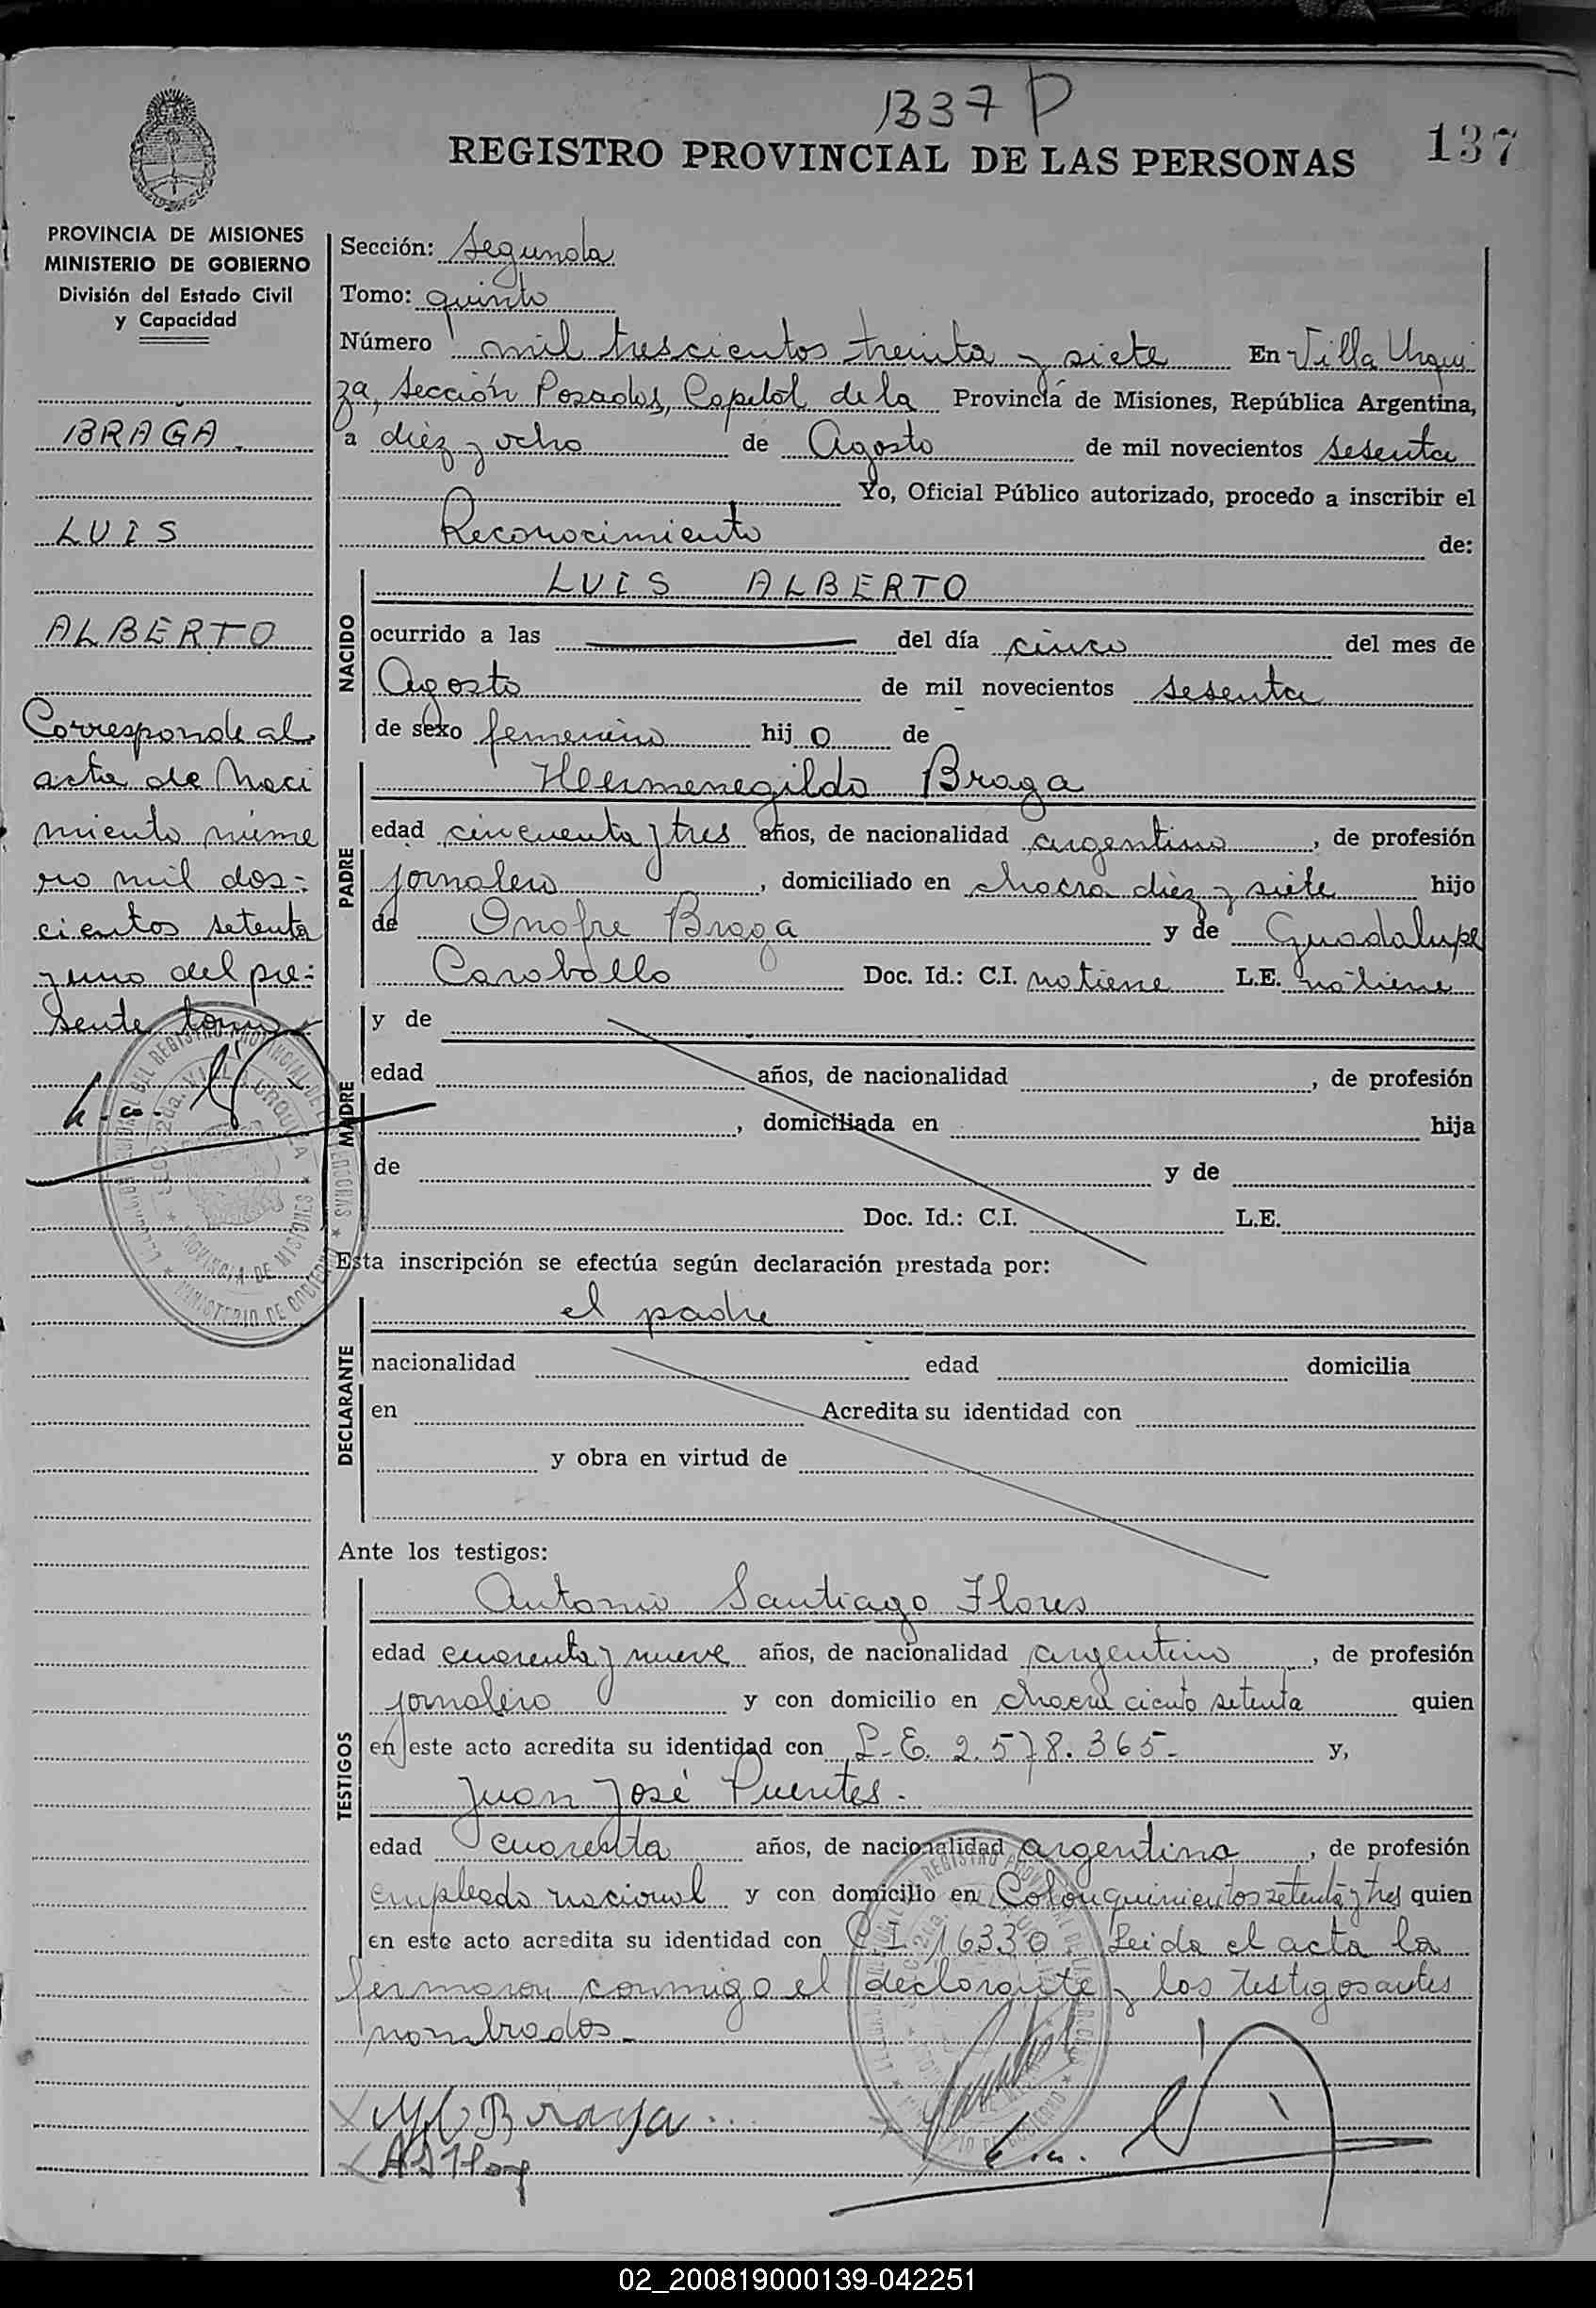 1337 P
REGISTRO PROVINCIAL DE LAS PERSONAS
137
PROVINCIA DE MISIONES
MINISTERIO DE GOBIERNO
División del Estado Civil
y Capacidad
BRAGA.
LUIS
ALBERTO
Corresponde al
acta de Naci
miento núme
ro mil dos=
cientos setenta
y uno del pre=
sente tomo
Sección: Segunda
Tomo: quinto
Número mil trescientos treinta y siete En Villa Urqui
za, Sección Posadas, Capital de la Provincia de Misiones, República Argentina,
a diez y ocho de Agosto de mil novecientos sesenta
Yo, Oficial Público autorizado, procedo a inscribir el
Reconocimiento de:
NACIDO
LUIS ALBERTO
ocurrido a las del día cinco del mes de
Agosto de mil novecientos sesenta
de sexo femenino hij o de
PADRE
Hermenegildo Braga
edad cincuenta y tres años, de nacionalidad argentino, de profesión
jornalero, domiciliado en chacra diez y siete hijo
de Onofre Braga y de Guadalupe
Caraballo Doc. Id.: C.I. no tiene L.E. no tiene
MADRE
y de
edad años, de nacionalidad , de profesión
, domiciliada en hija
de y de
Doc. Id.: C.I. L.E.
Esta inscripción se efectúa según declaración prestada por:
DECLARANTE
el padre
nacionalidad edad domicilia
en Acredita su identidad con
y obra en virtud de
Ante los testigos:
TESTIGOS
Antonio Santiago Flores
edad cuarenta y nueve años, de nacionalidad argentino, de profesión
jornalero y con domicilio en chacra ciento setenta quien
en este acto acredita su identidad con L.E. 2.578.365- y,
Juan José Puentes.
edad cuarenta años, de nacionalidad argentina, de profesión
empleado nacional y con domicilio en Colon quinientos setenta y tres quien
en este acto acredita su identidad con C I 16330 Leida el acta la
firmaron conmigo el declarante y los testigos antes
nombrados-
Braga
02_200819000139-042251